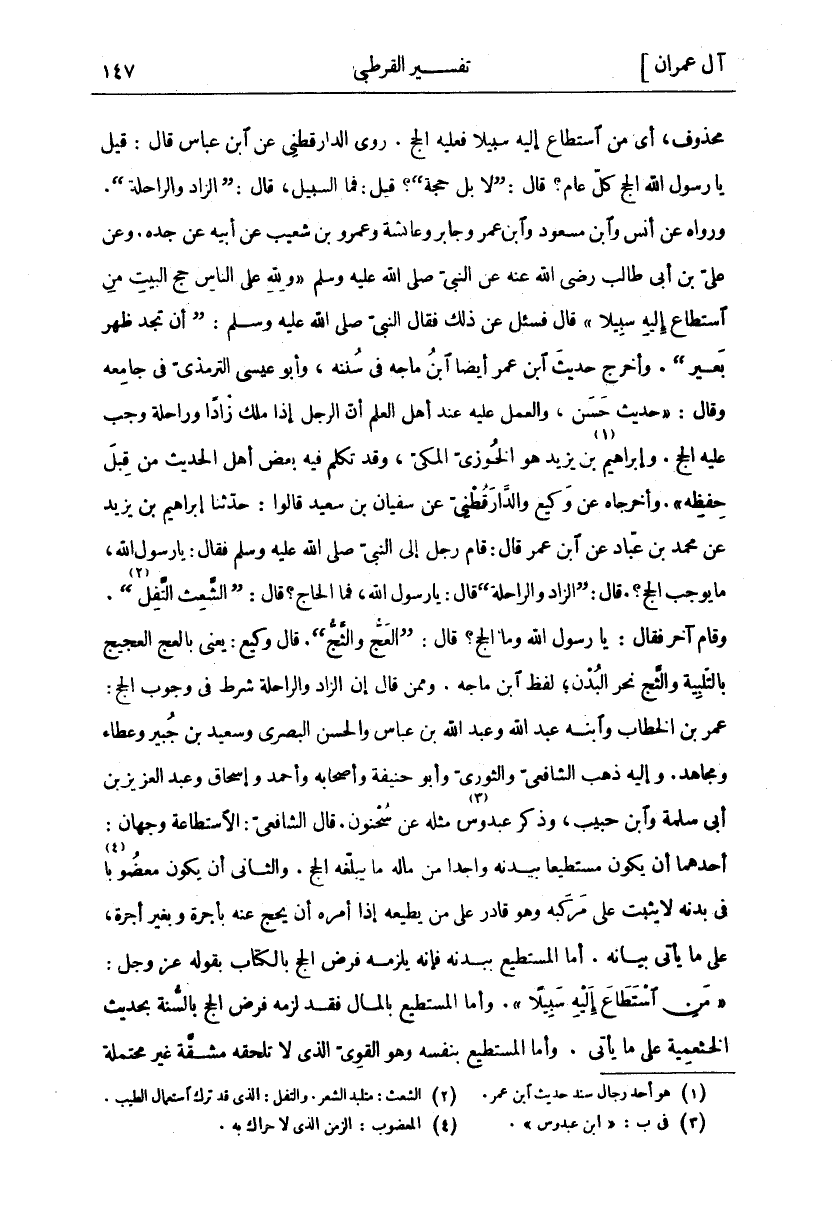 آل عمران ] تفســـير القرطبى ١٤٧
محذوف، أى من ٱستطاع إليه سبيلا فعليه الحج . روى الدارقطنِى عن ٱبن عباس قال : قيل
يا رسول الله الحج كلّ عام؟ قال : ”لا بل حجة“؟ قيل : فما السبيل، قال : ”الزاد والراحلة“ .
ورواه عن أنس وٱبن مسعود وٱبن عمر وجابر وعائشة وعمرو بن شعيب عن أبيه عن جده. وعن
علىّ بن أبى طالب رضى الله عنه عن النبىّ صلى الله عليه وسلم «ولِلّهِ على الناس حج البيتِ منِ
ٱستطاع إِليهِ سبِيلا » قال فسئل عن ذلك فقال النبىّ صلى الله عليه وســلم : ” أن تجد ظهر
بَعــير “ . وأخرج حديثَ ٱبن عمر أيضا ٱبنُ ماجه فى سُننه ، وأبو عيسى الترمذىّ فى جامِعه
وقال : «حديث حَسَن ، والعمل عليه عند أهل العلم أنّ الرجل إذا ملك زْادًا وراحلة وجب
عليه الحج . وإبراهيم بن يزيد هو الخُوزىّ المكىّ (١) ، وقد تكلم فيه بعض أهل الحديث من قِبلَ
حِفظِه» . وأخرجاه عن وَكيع والدَّارَقُطْنِىّ عن سفيان بن سعيد قالوا : حدّثنا إبراهيم بن يزيد
عن محمد بن عبّاد عن ٱبن عمر قال : قام رجل إلى النبىّ صلى الله عليه وسلم فقال : يا رسول الله،
ما يوجب الحج؟. قال : ”الزاد والراحلة“ قال : يا رسول الله، فما الحاج؟ قال : ” الشَّعِث التَّفِل (٢) “ .
وقام آخر فقال : يا رسول الله وما الحج؟ قال : ”العَجُّ والثَّجُّ“. قال وكيع : يعنى بالعج العجيج
بالتَّلبِية والثَّج نحر البُدْن؛ لفظ ٱبن ماجه . وممن قال إن الزاد والراحلة شرط فى وجوب الحج :
عمر بن الخطاب وٱبنــه عبد الله وعبد الله بن عباس والحسن البصرى وسعيد بن جُبير وعطاء
ومجاهد. وإليه ذهب الشافعىّ والثورىّ وأبو حنيفة وأصحابه وأحمد وإسحاق وعبد العزيز بن
أبى سلمة وٱبن حبيب، وذكر عبدوس (٣) مثله عن سُحْنون. قال الشافعىّ : الٱستطاعة وجهان :
أحدهما أن يكون مستطيعا ببــدنه واجدا من ماله ما يبلّغه الحج . والثــانى أن يكون معضُوبا (٤)
فى بدنه لا يثبت على مَرْكَبه وهو قادر على من يطيعه إذا أمره أن يحج عنه بأجرة وبغير أجرة،
على ما يأتى بيــانه . أما المستطيع ببــدنه فإنه يلزمــه فرض الحج بالكتاب بقوله عز وجل :
« مَنِ ٱسْتَطَاعَ إِلَيْهِ سَبِيلًا » . وأما المستطيع بالمــال فقــد لزمه فرض الحج بالسُّنة بحديث
الخثعمية على ما يأتى . وأما المستطيع بنفسه وهو القوِىّ الذى لا تلحقه مشــقَّة غير محتملة
(١) هو أحد رجال سند حديث ٱبن عمر . (٢) الشعث : متلبد الشعر . والتفل : الذى قد ترك ٱستعمال الطيب .
(٣) فى ب : « ابن عبدوس » . (٤) المعضوب : الزمن الذى لا حراك به .